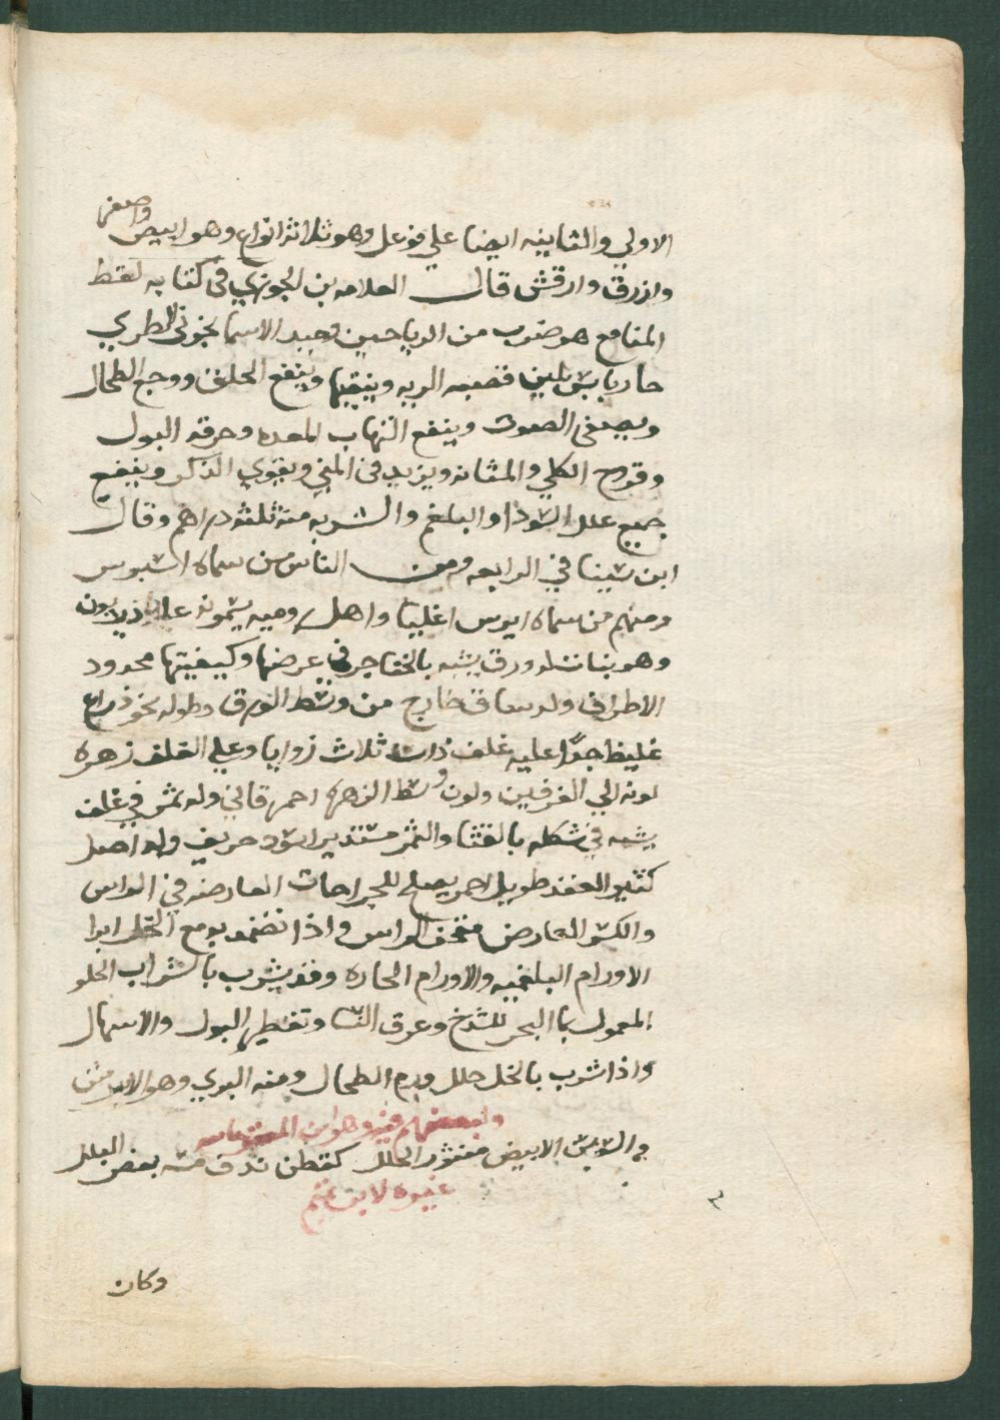 الاولي والثانيه ايضا علي فوعل وهو ثلاثة انواع وهو ابيض واصفر
وازرق وارقش قال العلامه بن الجوزي في كتابه لقط
المنافع هو ضرب من الرياحين وجيد الاسمانجوني الطري
حار يابس يلين قصبه الريه وينقيها وينفع الحلق ووجع الطحال
ويصفى الصوت وينفع التهاب المعده وحرقه البول
وقروح الكلي والمثانه ويزيد في المني ويقوي الذكر وينفع
جميع علل السودا والبلغم والشربه منه ثلثه دراهم وقال
ابن سينا في الرابعه ومن الناس من سماه
ومنهم من سماه ايرس اغليا واهل روميه يسمونه
وهو نبات له ورق يشبه بالخناجر في عرضها وكيفيتها محدود
الاطراف وله ساق خارج من وسط الورق وطوله نحو ذراع
غليظ جدا عليه غلف ذات ثلاث زوايا وعلي الغلف زهره
لونه الي الفرفين ولون وسط الزهره احمر قاني وله ثمر في غلف
يشبه في شكله بالقثا والثمر مستدير اسود حريف وله اصل
كثير العقد طويل احمر يصلح للجراحات العارضه في الراس
والكسر العارض قحف الراس واذا تضمد به مع الخل ابرا
الاورام البلغميه والاورام الحاره وقد يشرب بالشراب الحلو
المعمول بما البحر للشدخ وعرق النسا وتقطير البول والاسهال
واذا شرب بالخل حلل ورم الطحال ومنه البري وهو
ولبعضهم فيه وهو من
والسوسن الابيض منثور الحلل كقطن ندف مسه بعض البلل
غيره لابن تميم
وكان